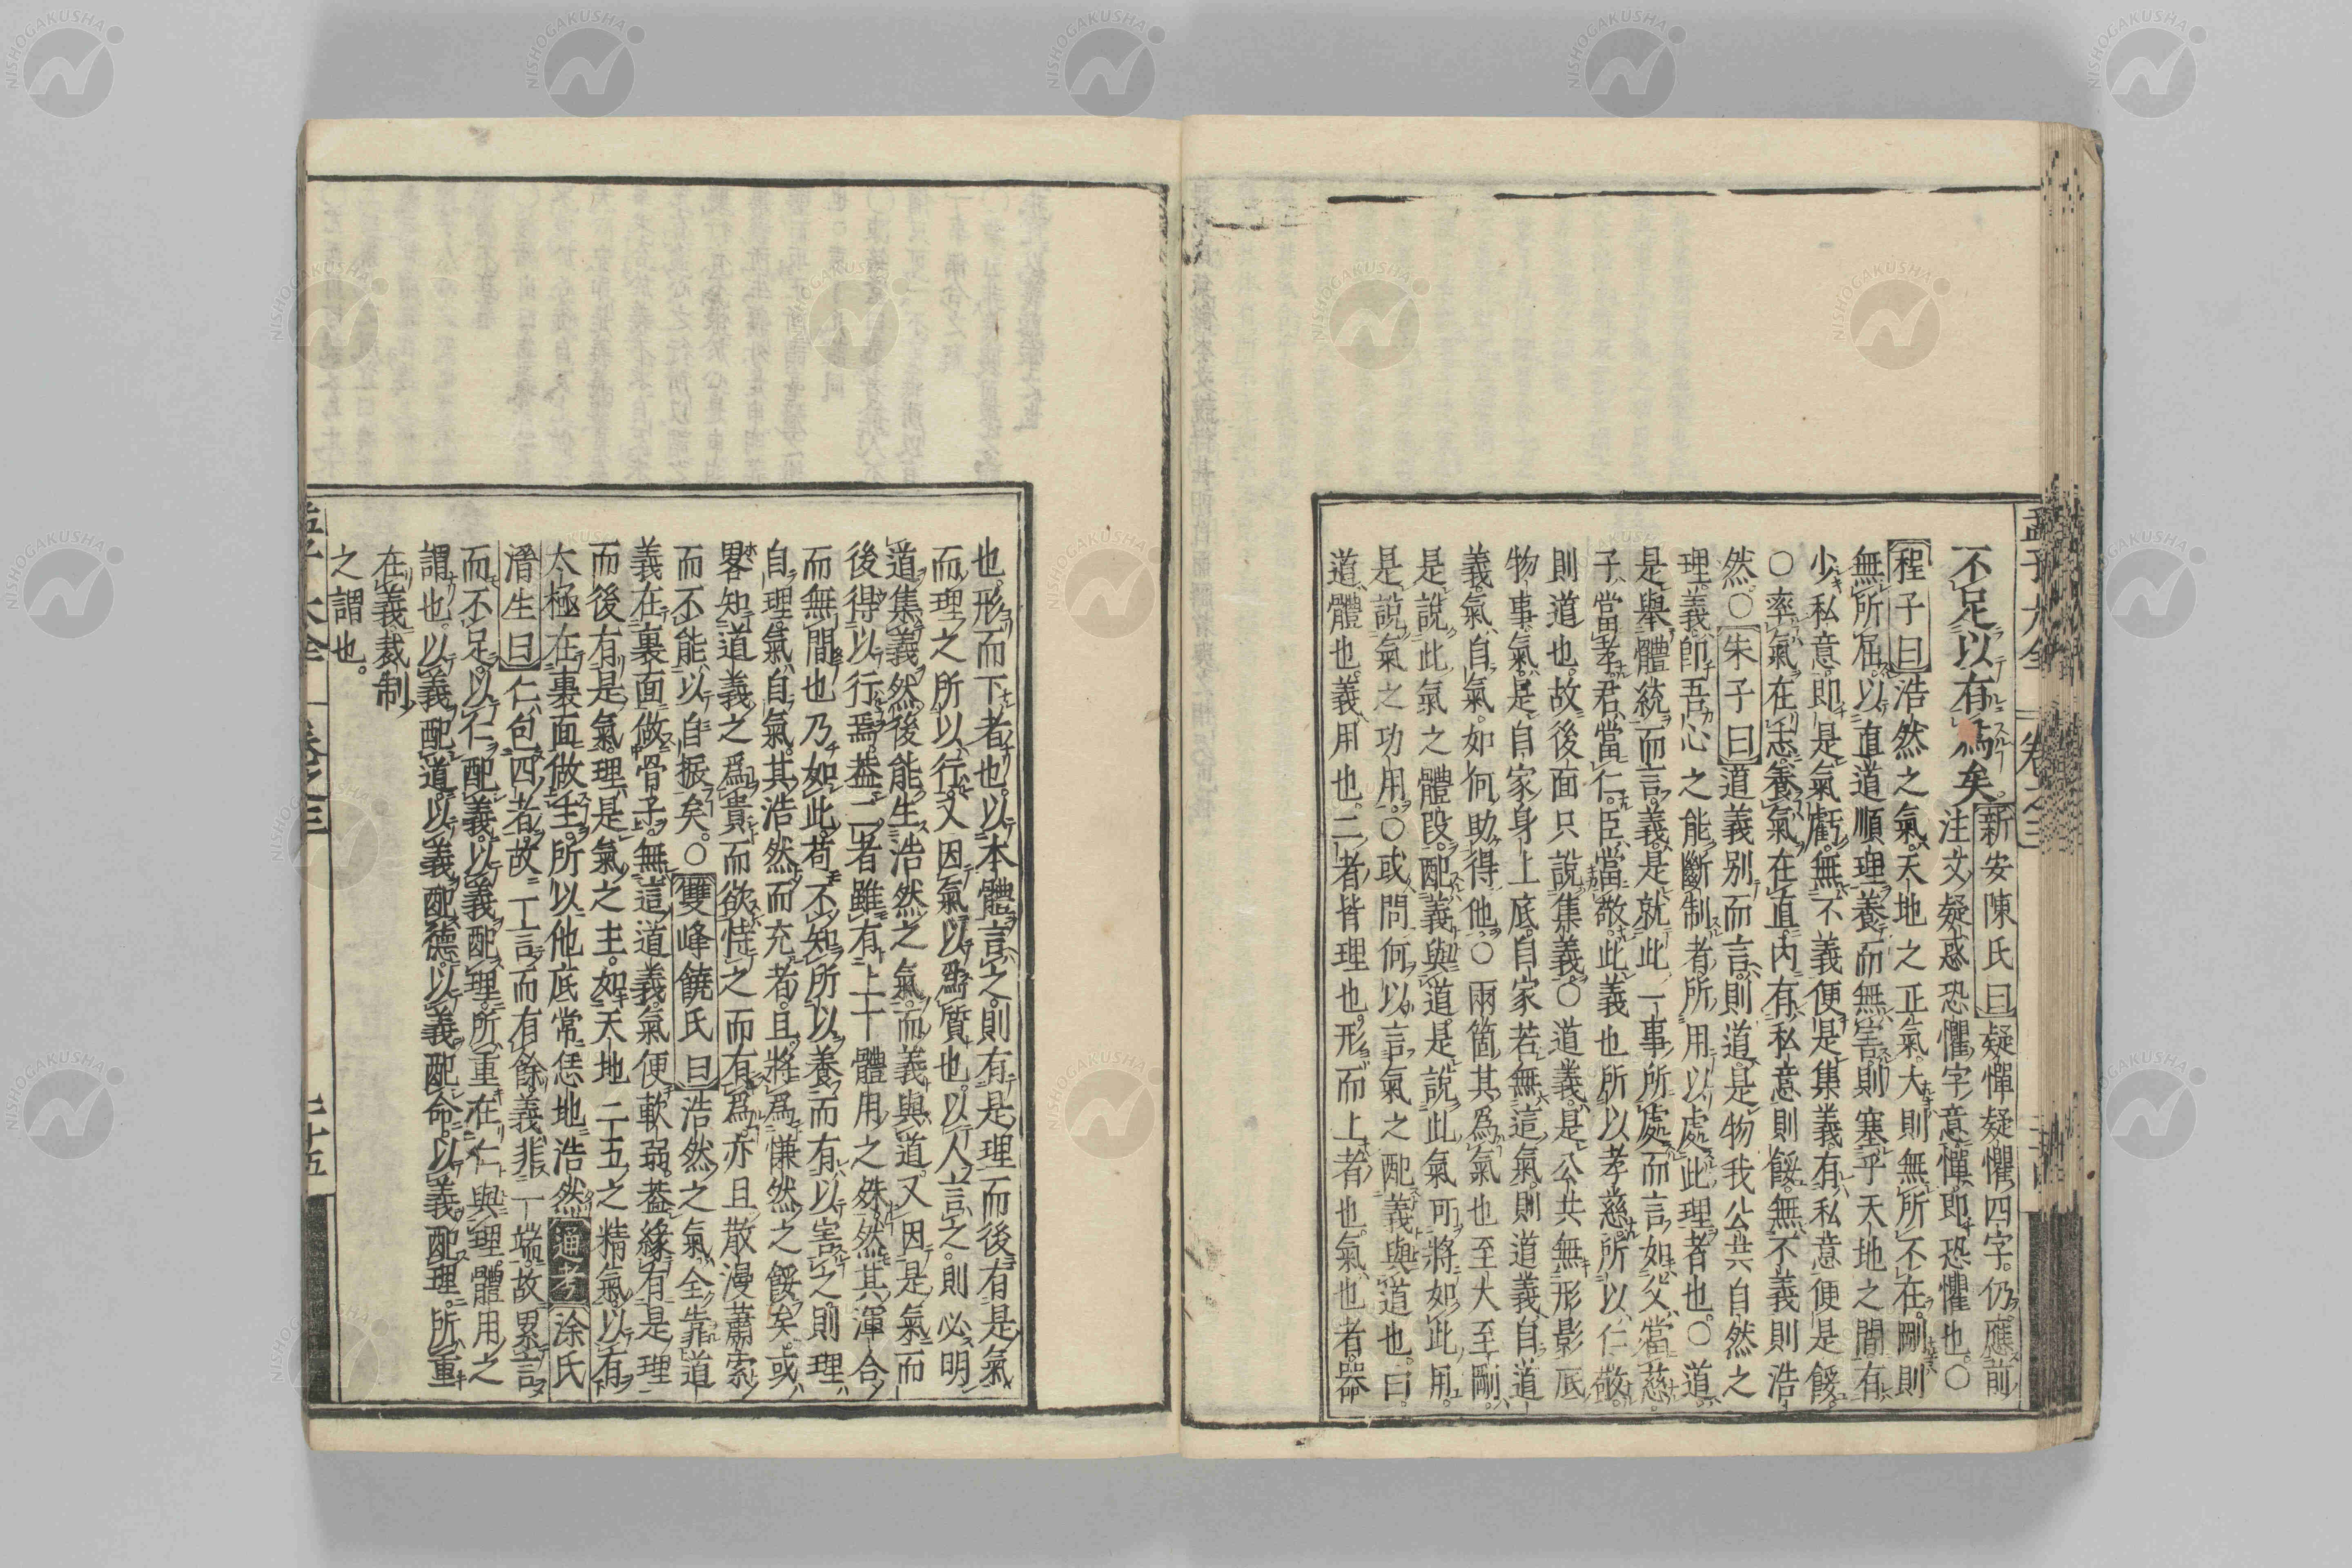 不足以有爲矣。新安陳氏曰疑憚疑懼四字。仍應前
注文疑惑恐懼字意憚。即恐懼也。○
程子曰浩然之氣天地之正氣。大則無所不在。剛則
無所屈。以直道順理養而無害則塞乎天地之間。有
少私意。即是氣虧。無不義便是集義有私意便是餒。
○率氣在志。養氣在直。内有私意則餒。無不義則浩
然○朱子曰道義別而言。則道是物我公共自然之
理。義即吾心之能斷制者所用以處此理者也。○道
是舉體統而言。義是就此一事所處而言如父當慈。
子當孝。君當仁。臣當敬。此義也所以孝慈。所以仁敬。
則道也。故後面只說集義。○道義是公共無形影底
物事氣。是自家身上底。自家若無這氣則道義自道
義。氣自氣。如何助得他。○兩箇其為氣也至大至剛。
是說此氣之體段。配義與道。是說此氣可將如此用。
是說氣之功用。○或問何以言氣之配義與道也。曰。
道體也。義用也。二者皆理也。形而上者也。氣也者。器
也。形而下者也。以本體言之。則有是理而後有是氣
而理之所以行。又因氣以爲質也。以人言之。則必明
道集義然後能生浩然之氣。而義與道。又因是氣而
後得以行焉。葢二者雖有上下體用之殊。然其渾合
而無間也乃如此。苟不知所以養而有以害之則理
自理。氣自氣。其浩然而充者。且將爲慊然之餒矣。或
畧知道義之爲貴而欲恃之而有爲。亦且散漫蕭索
而不能以自振矣。○雙峰饒氏曰浩然之氣全靠道
義在裏面做骨子。無這道義。氣便軟弱。葢緣有是理
而後有是氣。理是氣之主。如天地二五之精氣。以有
太極在裏面做主。所以他底常恁地浩然通考涂氏
潛生曰仁包四者。故一言而有餘。義非一端。故累言
而不足。以仁配義。以義配理。所重在仁與理。體用之
謂也。以義配道。以義配德。以義配命。以義配理。所重
在義。裁制
之謂也。
孟子大全 卷之三 二十五